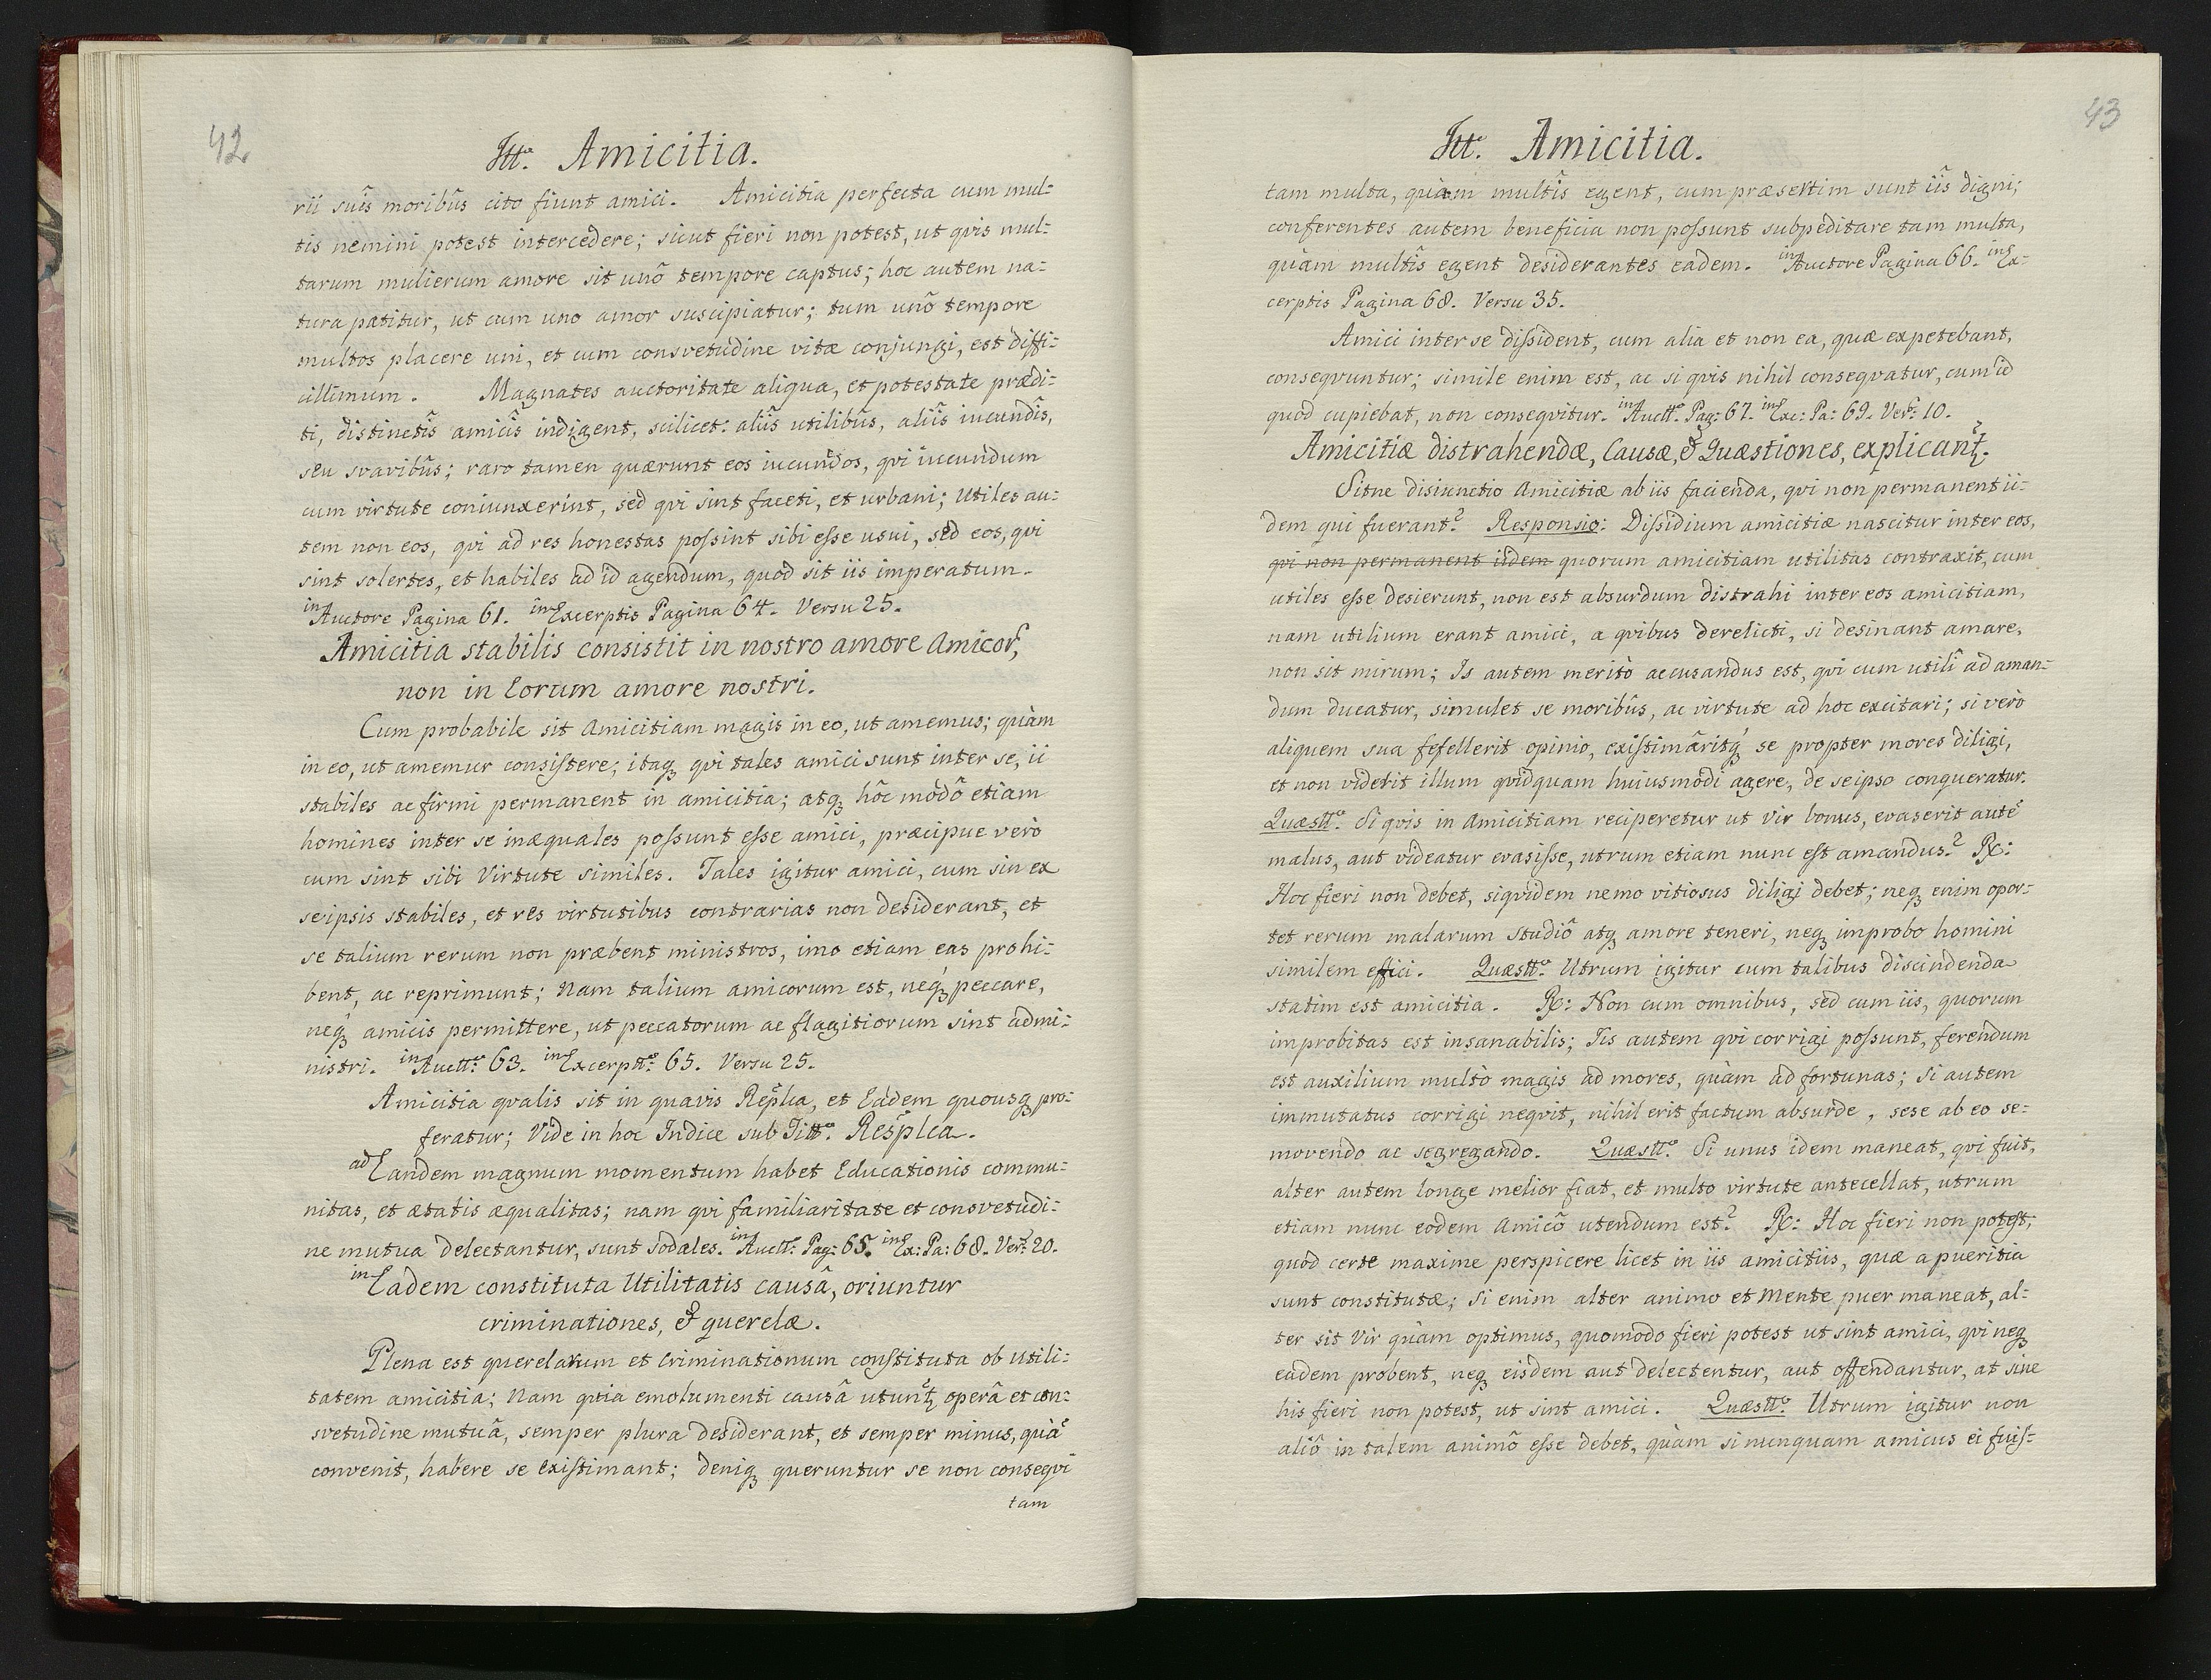 42
Ttt. Amicitia.
rii suîs moribûs cito fiunt amici. Amicitia perfecta cum mul:
tis nemini potest intercedere; sicut fieri non potest, ut qvis mul:
tarum mulierum amore sit unô tempore captus; hoc autem na:
tura patitur, ut cum uno amor suscipiatur; tum unô tempore
multos placere uni, et cum consvetudine vitæ conjungi, est diffi:
cillimum. Magnates auctoritate aliqua, et potestate prædi:
ti, distinctîs amicîs indigent, scilicet: aliîs utilibûs, aliîs iucundîs,
seu svavibûs; raro tamen quærunt eos iucundos, qvi iucundum
cum virtute coniunxerint, sed qvi sint faceti, et urbani; Utiles au:
tem non eos, qvi ad res honestas poſsint sibi eſse usui, sed eos, qvi
sint solertes, et habiles ad id agendum, quod sit iis imperatum.
in Auctore Pagina 61. in Excerptis Pagina 64. Versu 25.
Amicitia stabilis consistit in nostro amore Amicor,
non in Eorum amore nostri.
Cum probabile sit Amicitiam magis in eo, ut amemus; quàm
in eo, ut amemur consiſtere; itaq qvi tales amici sunt inter se, ii
stabiles ac firmi permanent in amicitia; atq hôc modô etiam
homines inter se inæquales poſsunt eſse amici, præcipue verò
cum sint sibi Virtute similes. Tales igitur amici, cum sin ex
seipsis stabiles, et res virtutibus contrarias non desiderant, et
se talium rerum non præbent ministros, imo etiam eas prohi:
bent, ac reprimunt; Nam talium amicorum est, neq peccare,
neq amicis permittere, ut peccatorum ac flagitiorum sint admi:
nistri. in Auctt: 63. in Excerptt: 65. Versu 25.
Amicitia qvalis sit in quavis Replca, et Eadem quousq pro:
feratur; Vide in hoc Indice sub Titt. Resplca.
ad Eandem magnum momentum habet Educationis commu:
nitas, et ætatis æqualitas; nam qvi familiaritate et consvetudi:
ne mutua delectantur, sunt Sodales. in Auctt: Pag: 65. in Ex: Pa: 68. Ver: 20.
in Eadem constituta Utilitatis causâ, oriuntur
criminationes, & querelæ.
Plena est querelarum et Criminationum conſtituta ob Utili:
tatem amicitia; Nam quia emolumenti causâ utunt, operâ et con:
svetudine mutuâ, semper plura desiderant, et semper minus, quã
convenit, habere se exiſtimant; deniq queruntur se non conseqvi
tam
43
Ttt. Amicitia.
tam multa, quàm multîs egent, cum præsertim sunt iîs digni;
conferentes autem beneficia non poſsunt subpeditare tam multa,
quàm multîs egent desiderantes eadem. in Auctore Pagina 66. in Ex-
cerptis Pagina 68. Versu 35.
Amici inter se diſsident, cum alia et non ea, quæ expetebant,
conseqvuntur; simile enim est, ac si qvis nihil conseqvatur, cum id
quod cupiebat, non conseqvitur. in Auctt. Pag: 67. in Exc: Pa: 69. Ver: 10.
Amicitiæ distrahendæ, Causæ, & Quæstiones, explicant.
Sitne disiunctio Amicitiæ ab iis facienda, qvi non permanent ii-
dem qui fuerant? Responsio: Diſsidium amicitiæ nascitur inter eos,
qvi non permanent iidem quorum amicitiam utilitas contraxit, cum
utiles eſse desierunt, non est absurdum distrahi inter eos amicitiam,
nam utilium erant amici, a qvibus derelicti, si desinant amare,
non sit mirum; Is autem meritò accusandus est, qvi cum utilî ad aman-
dum ducatur, simulet se moribûs, ac virtute ad hoc excitari; si verò
aliquem sua fefellerit opinio, exiſtimâritq se propter mores diligi,
et non viderit illum qvidquam huiusmodi agere, de seipso conqueratur.
Quæstt. Si qvis in Amicitiam reciperetur ut Vir bonus, evaserit autẽ
malus, aut videatur evasiſse, utrum etiam nunc eſt amandus? Rx:
Hoc fieri non debet, siqvidem nemo vitiosus diligi debet; neq enim opor-
tet rerum malarum studiô atq amore teneri, neq improbo homini
similem effici. Quæstt. Utrum igitur cum talibus discindenda
statim est amicitia. Rx: Non cum omnibus, sed cum iis, quorum
improbitas est insanabilis; Iis autem qvi corrigi poſsunt, ferendum
est auxilium multò magis ad mores, quàm ad fortunas; Si autem
immutatus corrigi neqvit, nihil erit factum absurde, sese ab eo se:
movendo ac segregando. Quæstt. Si unus idem maneat, qvi fuit,
alter autem longe melior fiat, et multo virtute antecellat, utrum
etiam nunc eodem Amicô utendum est? Rx: Hoc fieri non poteſt;
quod certe maxime perspicere licet in iis amicitiis, quæ a pueritia
sunt constitutæ; Si enim alter animo et Mente puer maneat, al:
ter sit Vir quàm optimus, quomodo fieri potest ut sint amici, qvi neq
eadem probent, neq eisdem aut delectentur, aut offendantur, at sine
his fieri non potest, ut sint amici. Quæstt. Utrum igitur non
aliô in talem animô eſse debet, quàm si nunquam amicus ei fuiſ-